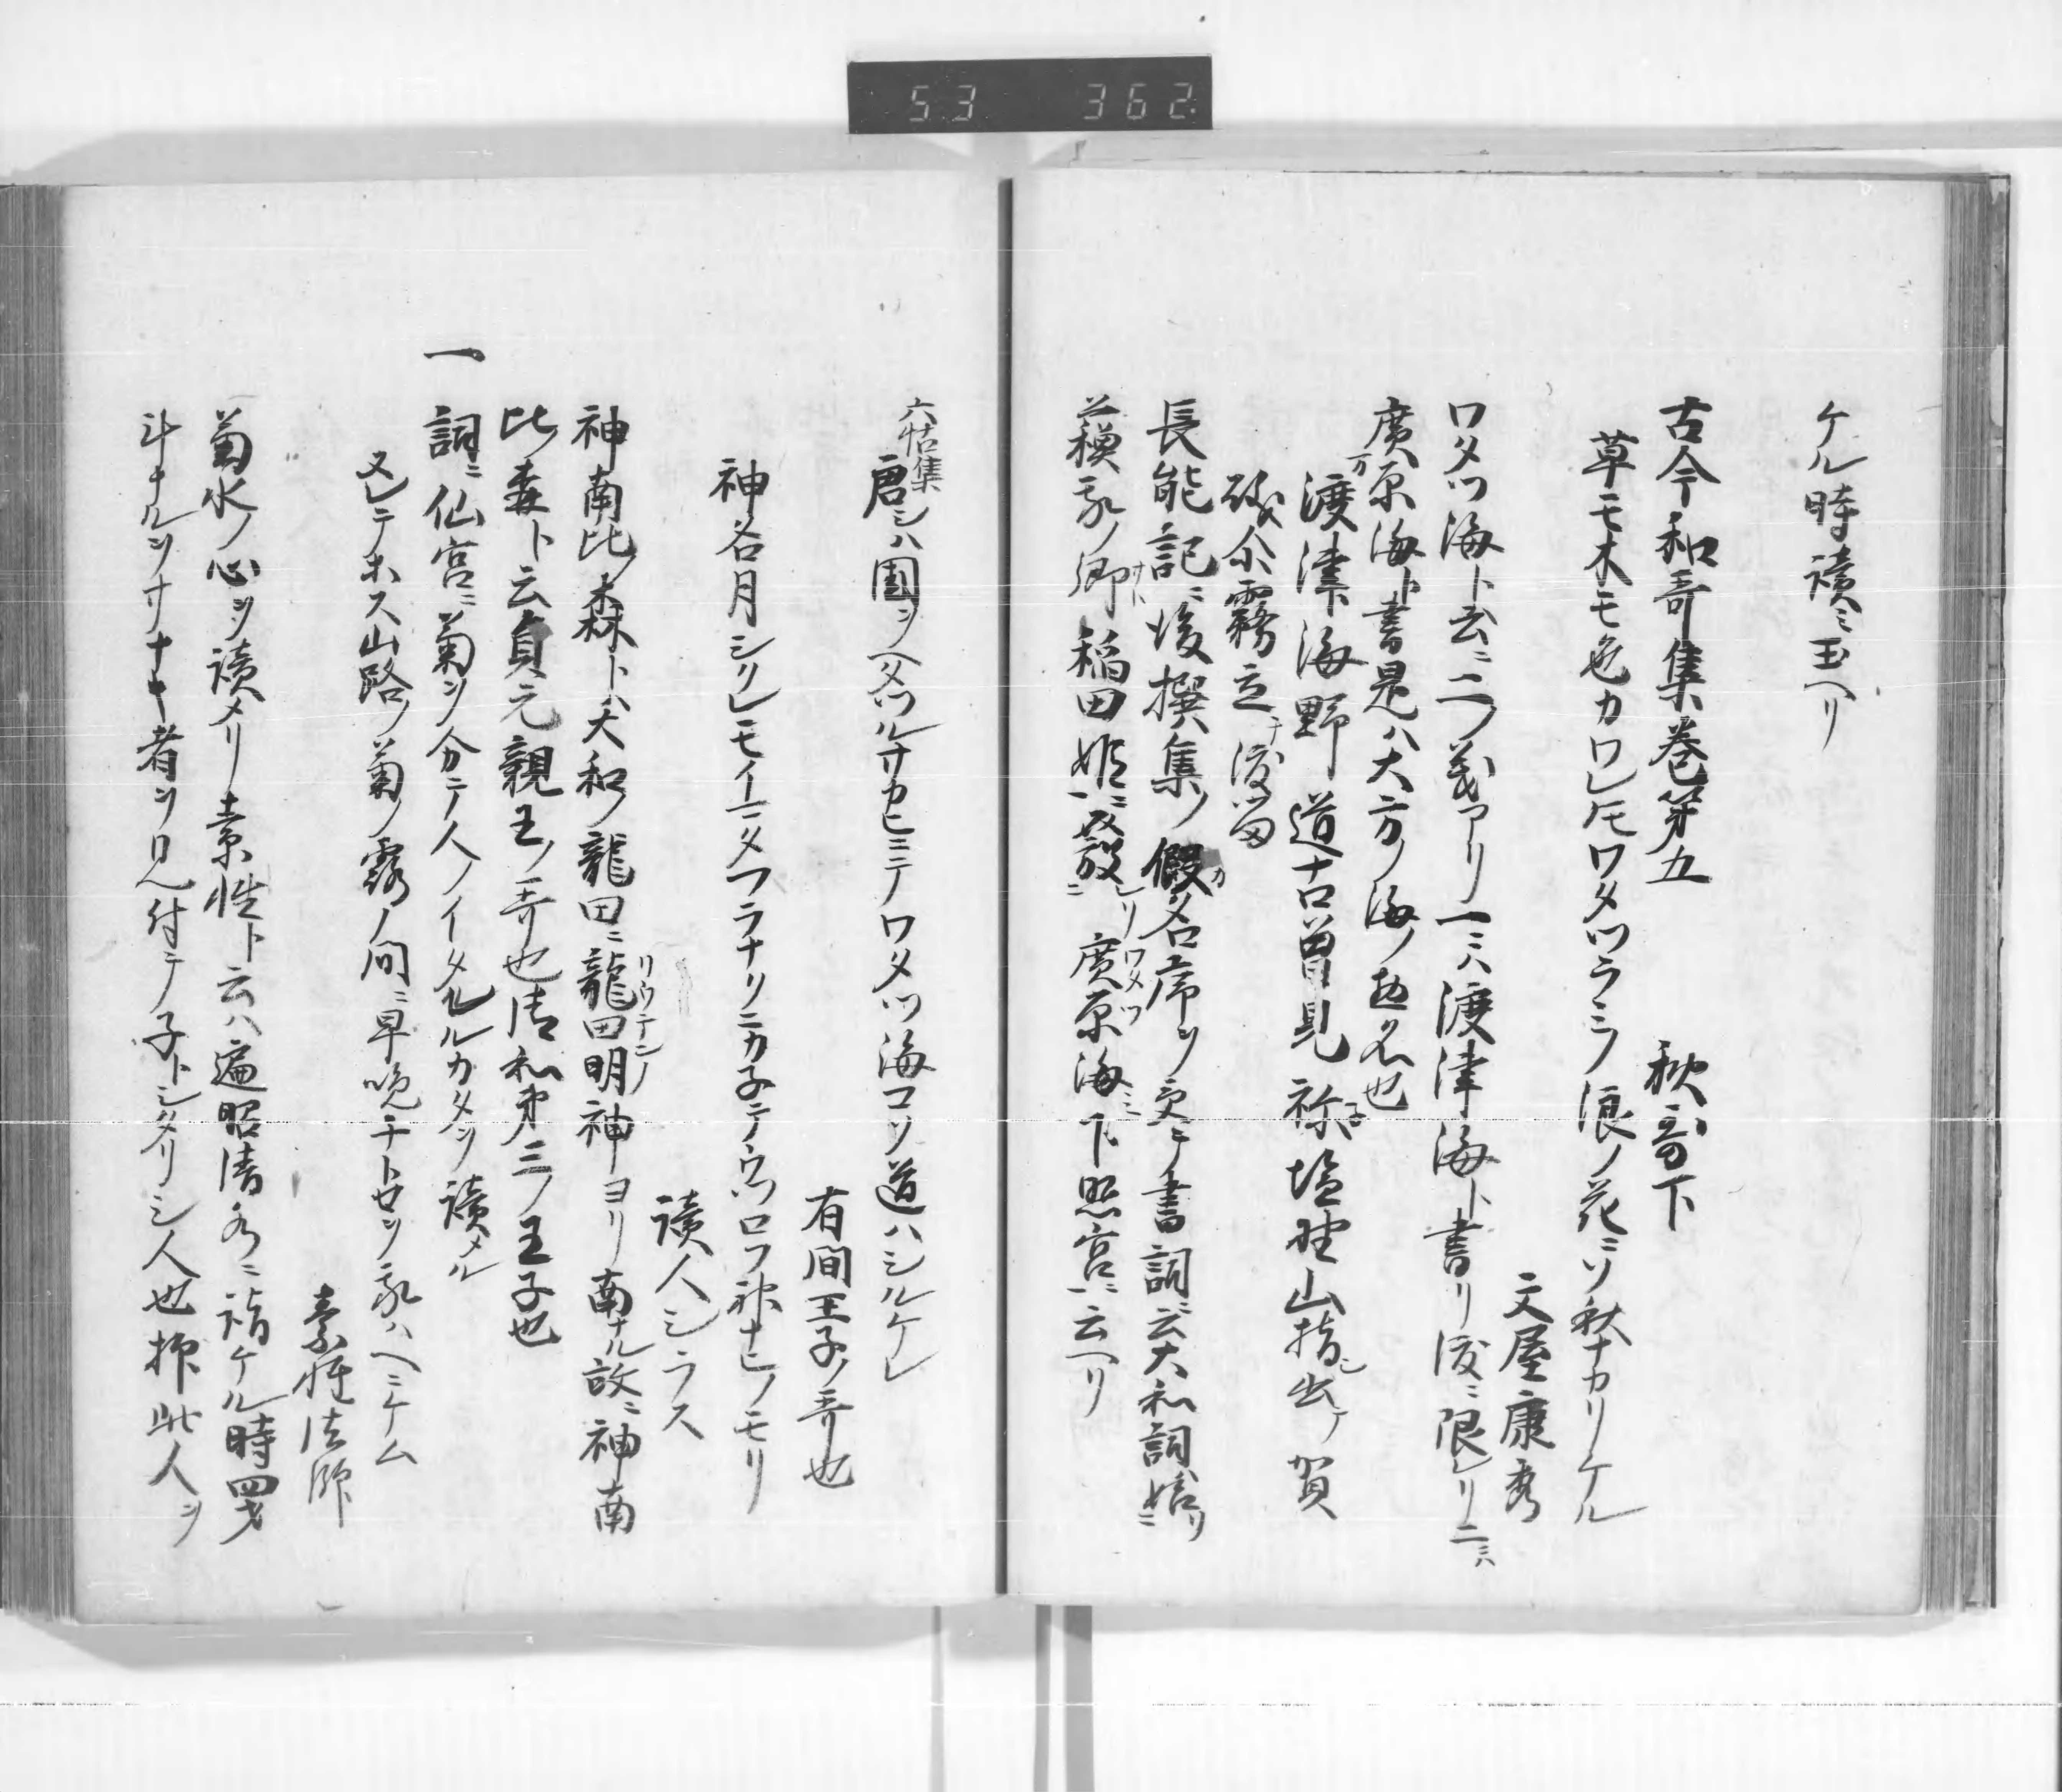 53 362
ケル時讀ミ玉ヘリ
古今和哥集巻第五 秋哥下
草モ木モ色カワレ𪜈ワタツラミノ浪ノ花ニソ秋ナカリケル
文屋康秀
ワタツ海ト云ニ二ノ義アリ一ニハ渡津海ト書リ渡ニ限レリ二ニハ
廣原海ト書是ハ大方ノ海ノ惣名也
万
渡津海野 道十口曽見 祢 塩 山指出テ 賀
礒 霧立 渡
長能記ニ後撰集ノ假名序ヲ受テ書詞云大和詞
ノ卿稲田姫ニ 廣原海ニ下照宮ニ云ヘリ
六帖集
唐シハ國ヲヘタツルサカヒニテワタツ海コソ道ハシルケレ
有間王子ノ哥也
神名月シクレモイマタフラナクニカ子テウツロフ神ナヒノモリ
讀人シラス
神南比ノ森トハ大和ノ龍田ニ龍田明神ヨリ南ナル故ニ神南
リウテンノ
比ノ森ト云貞元親王ノ哥也清和第三ノ王子也
一 詞ニ仙宮ニ菊ヲ分テ人ノイタルカタヲ讀メル
ヌレテホス山路ノ菊ノ露ノ間ニ早晩チトセヲ我ハヘニケム
素性法師
菊水ノ心ヲ讀メリ素性ト云ハ遍昭清水ニ詣ケル時四才
斗ナルヲサナキ者ヲ見付テ子トシタリシ人也抑此人ヲ